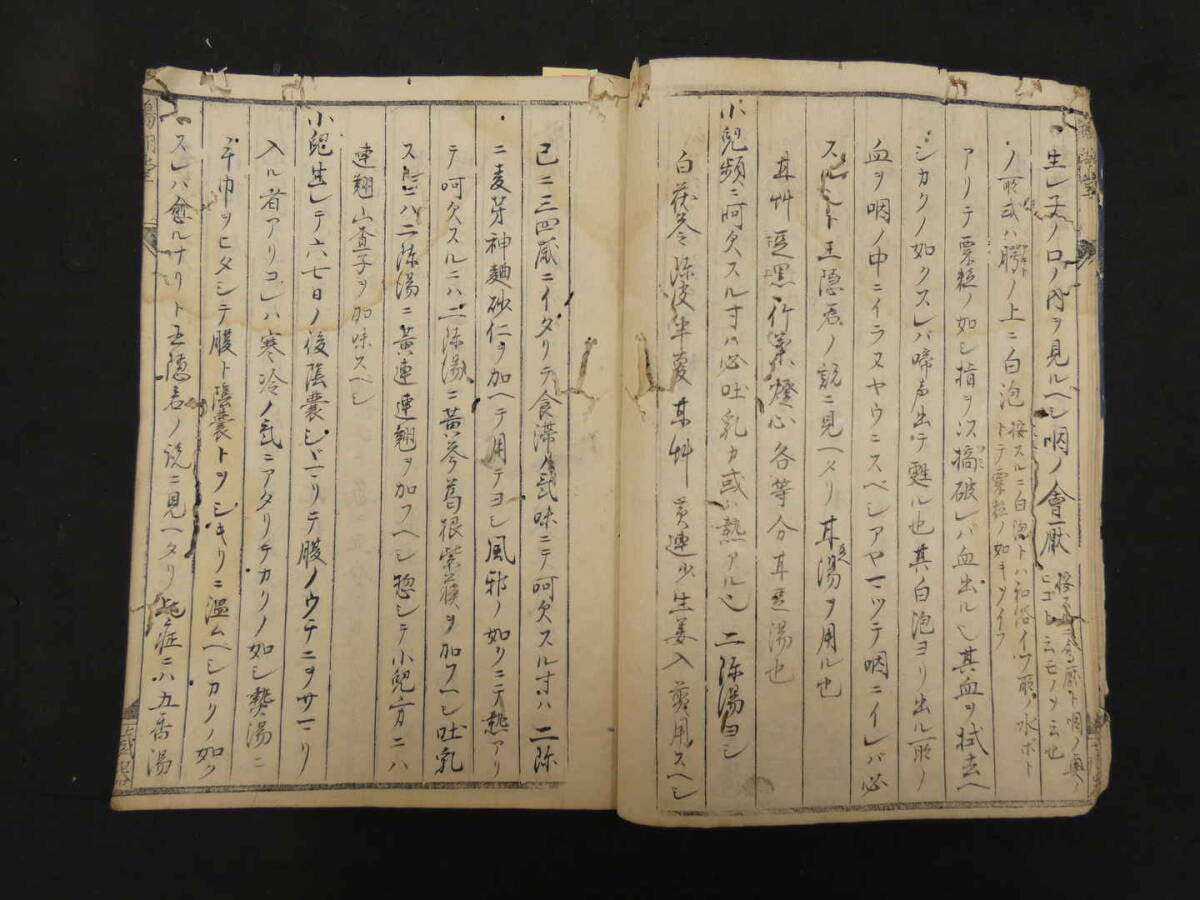 生レ子ノ口ノ内ヲ見ルベシ咽ノ會厭
ヒコト云モノヲ云也
ノ所或ハ腭ノ上ニ白泡
按スルニ白泡トハ和俗イフ所ノ水ボト
トテ粟粒ノ如キヲイフ
アリテ粟粒ノ如シ指ヲ以摘破レバ血出ル也其血ヲ拭去ヘ
シカクノ如クスレバ啼声出テ甦ル也其白泡ヨリ出ル所ノ
血ヲ咽ノ中ニイラヌヤウニスベシアヤマツテ咽ニイレバ必
王隠君ノ説ニ見ヘタリ 湯ヲ用ル也
甘艸 黒 竹葉燈心各等分 湯也
小兒頻ニ呵欠スル寸ハ必吐乳カ或ハ熱アル也 二陳湯ヨシ
白茯苓陳皮半夏甘艸 黄連少生姜入煎用スヘシ
已ニ三四歳ニイタリテ食滞ノ氣味ニテ呵欠スル寸ハ二陳
ニ麦芽神麹砂仁ヲ加ヘテ用テヨシ風邪ノ如クニテ熱アリ
テ呵欠スルニハ二陳湯ニ黄芩葛根紫蘓ヲ加フヘシ吐乳
スルニハ二陳湯ニ黄連連翹ヲ加フヘシ惣シテ小兒方ニハ
連翹山査子ヲ加味スベシ
小兒生レテ六七日ノ後陰嚢シヾマリテ腹ノウチニヲサマリ
入ル者アリコレハ寒冷ノ氣ニアタリテカクノ如シ熱湯ニ
手巾ヲヒタシテ腹ト陰嚢トヲシキリニ温ムベシカクノ如ク
スレハ愈ルナリト王隠君ノ説ニ見ヘタリ 此症ニハ五香湯